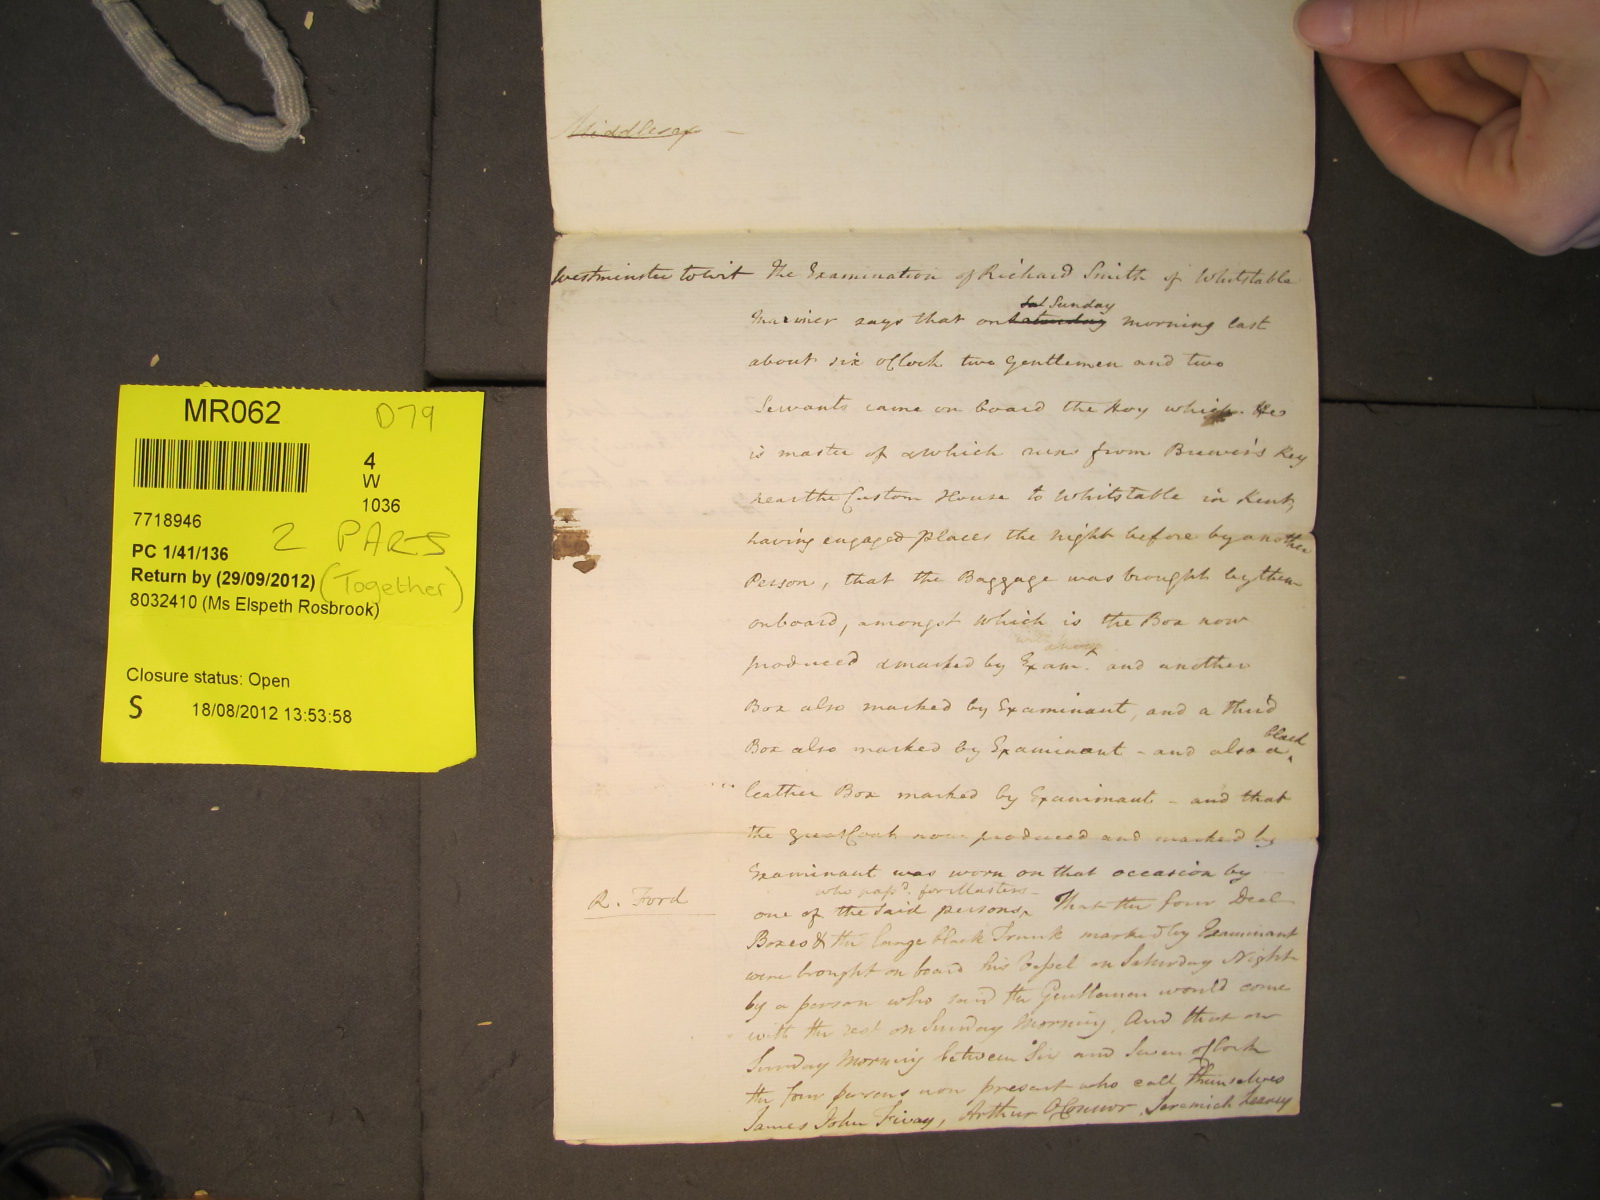 Middlesex —
Westminster to wit The Examination of Richard Smith of Whitstable
Sat Sunday
Mariner says that on Saturday morning last
about six oClock two Gentlemen and two
Servants came on board the Hoy which He
is master of & which runs from Brewer's Key
near the Custom House to Whitstable in Kent
having engaged places the night before by another
Person, that the Baggage was brought by them
onboard, amongst which is the Box now
produced & marked by Examt. and another
Box also marked by Examinant, and a third
Box also marked by Examinant - and also a
black
leather Box marked by Examinant - and that
the great Coat now produced and marked by
Examinant was worn on that occasion by
who pass'd for Masters
one of the said persons. That the four Deal
Boxes & the large black Trunk marked by Examinant
were brought on board his Vessel on Saturday Night
by a person who said the Gentlemen would come
with the rest on Sunday Morning. And that on
Sunday Morning between Six and Seven oClock
the four persons now present who call themselves
James John Fivay, Arthur OConnor, Jeremiah Leary
R. Ford
MR062 D79
4
W
1036
7718946
2 PARTS
PC 1/41/136
Return by (29/09/2012) (Together)
8032410 (Ms Elspeth Rosbrook)
Closure status: Open
S 18/08/2012 13:53:58